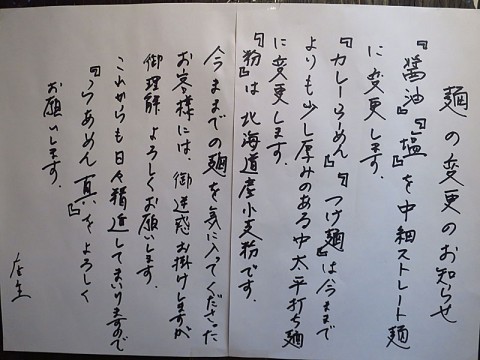 麺の変更のお知らせ
『醤油』『塩』を中細ストレート麺
に変更します。
『カレーらーめん』『つけ麺』は今まで
よりも少し厚みのある中太平打ち麺
に変更します。
『粉』は北海道産小麦粉です。
今までの麺を気に入ってくださった
お客様には、御迷惑お掛けしますが
御理解よろしくお願いします。
これからも日々精進してまいりますので
『らあめん真』をよろしく
お願いします。
店主